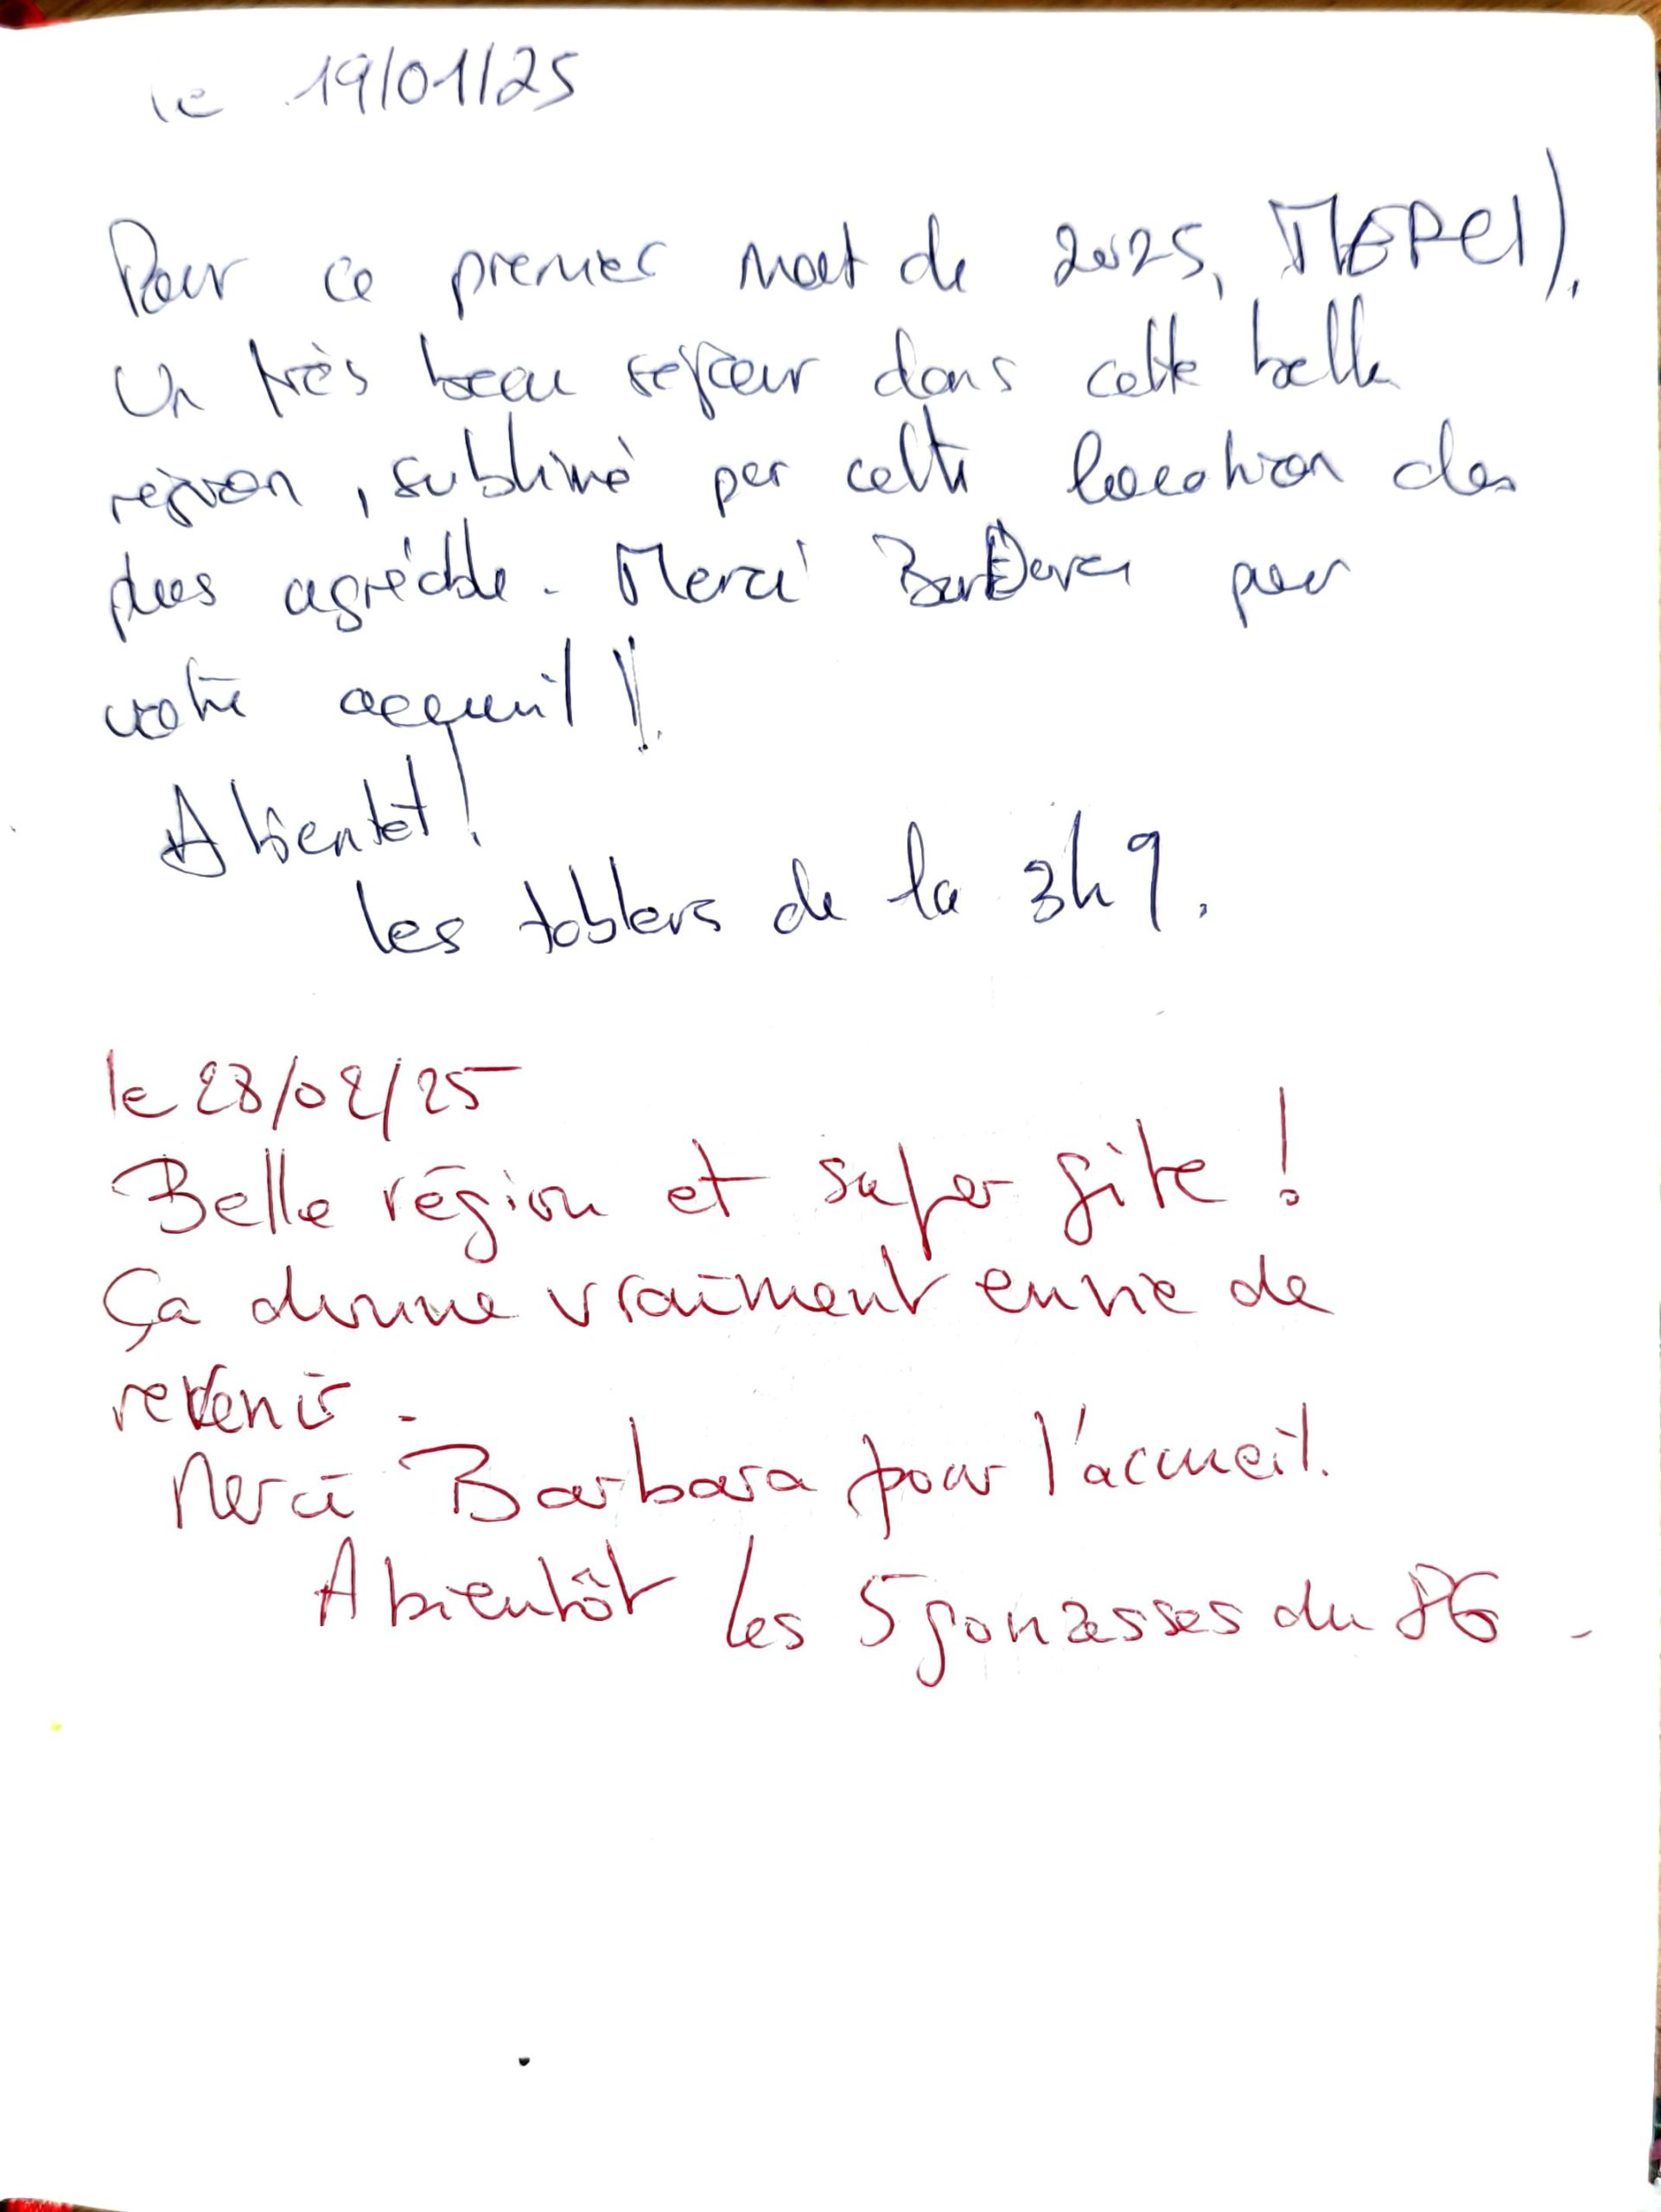 le 19/01/25
Pour ce premier mot de 2025, MERCI !,
Un très beau séjour dans cette belle
région, sublimé par cette location des
plus agréable. Merci Barbara pour
votre acqueuil !!
A bientôt !
les toblers de la 3h9.
le 28/02/25
Belle région et super gîte !
Ça donne vraiment envie de
revenir.
Merci Barbara pour l'accueil.
A bientôt les 5 gonzesses du 86.